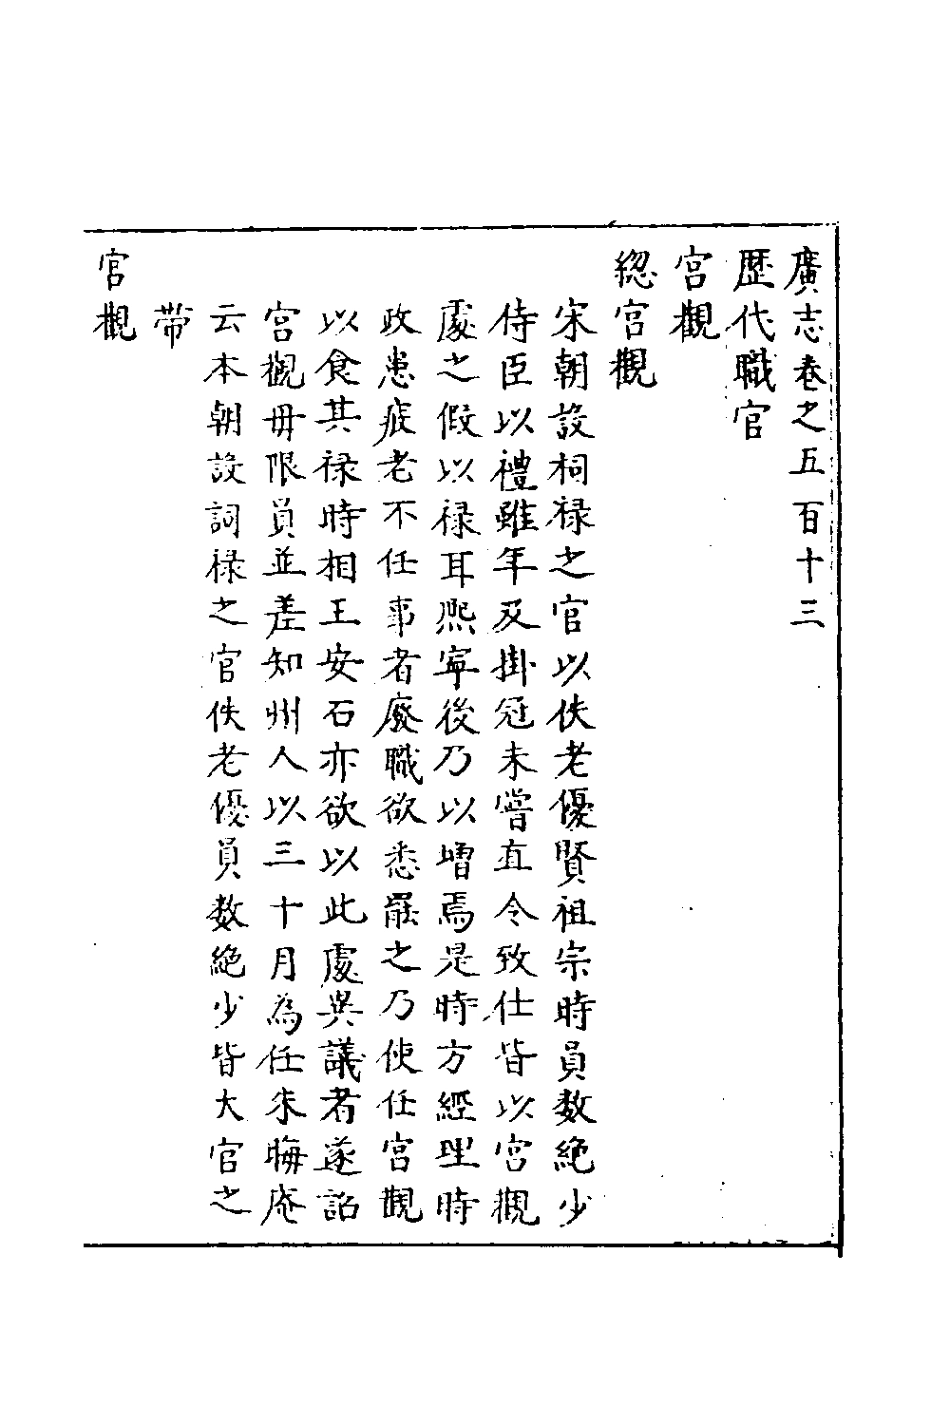 廣志卷之五百十三
歷代職官
宮觀
總宮觀
宋朝設祠禄之官以佚老優賢祖宗時員数絶少
侍臣以禮雖年及掛冠未嘗直令致仕皆以宮觀
處之假以禄耳熙寧後乃以増焉是時方經理時
政患疲老不任事者廢職欲悉罷之乃使任宮觀
以食其禄時相王安石亦欲以此處異議者遂詔
宮觀毋限員並差知州人以三十月為任朱晦庵
云本朝設詞禄之官佚老優員数絶少皆大官之
帯
官觀